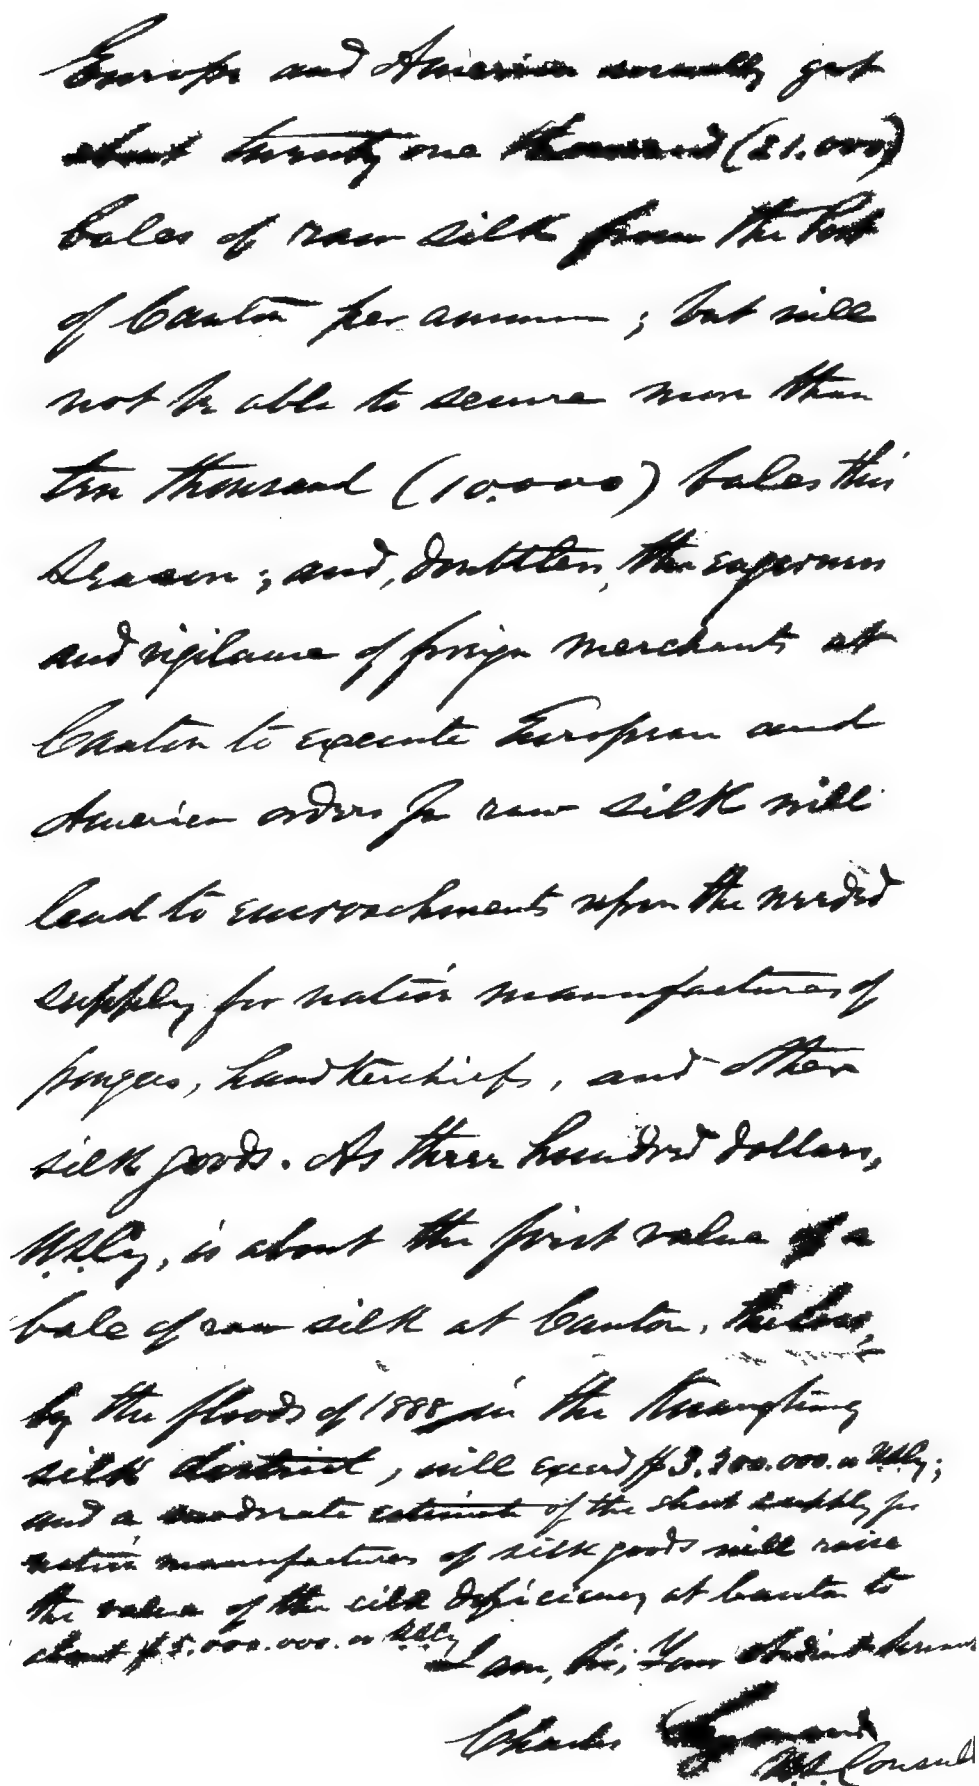 Europe and America annually get
about twenty one thousand (21.000)
bales of raw silk from the Port
of Canton per annum; but will
not be able to secure more than
ten thousand (10.000) bales this
season; and, doubtless, the eagerness
and vigilance of foreign merchants at
Canton to execute European and
American orders for raw silk will
lead to encroachments upon the needed
supply for native manufactures of
pongees, handkerchiefs, and other
silk goods. As three hundred dollars,
U.S.Cy, is about the first value of a
bale of raw silk at Canton, the loss,
by the floods of 1888, in the Kwangtung
silk district, will exceed $3.300.000.00 U.S.Cy;
and a moderate estimate of the short supply for
native manufactures of silk goods will raise
the value of the silk deficiency at Canton to
about $5.000.000.00 U.S.Cy
I am, Sir, Your Obedient Servant
Charles Seymour
US Consul